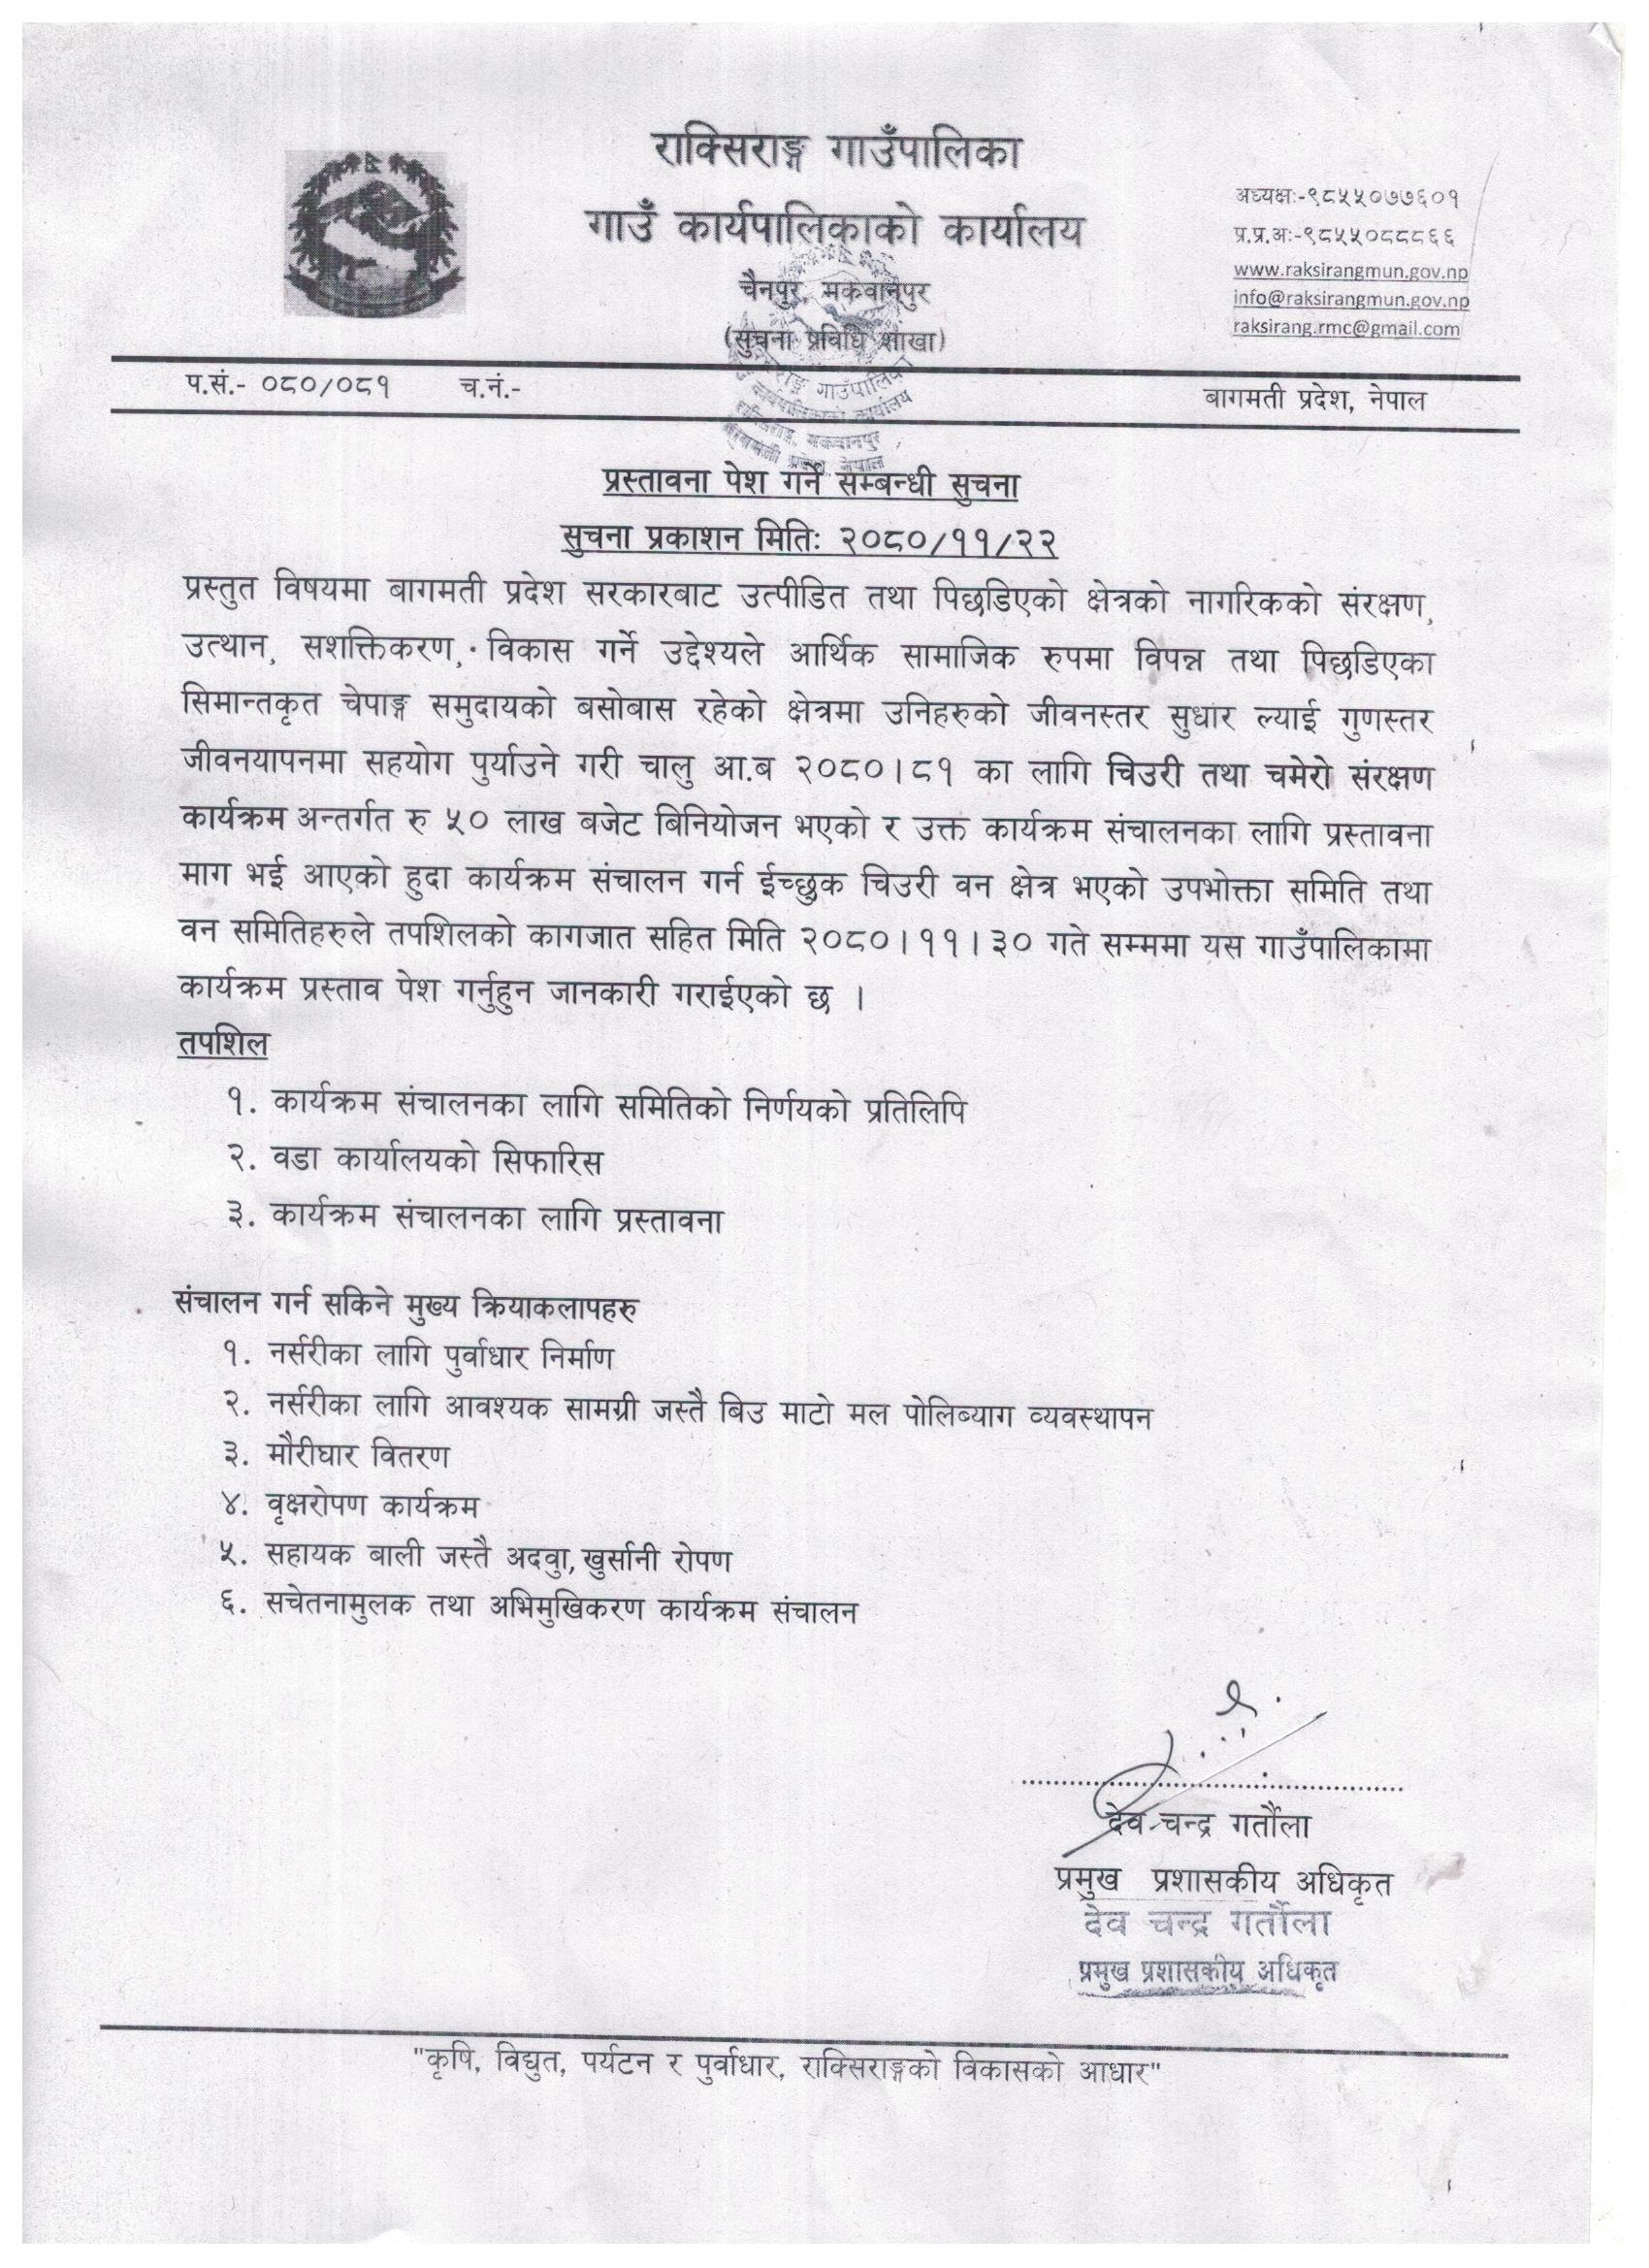 राक्सिराङ्ग गाउँपालिका
गाउँ कार्यपालिकाको कार्यालय
चैनपुर, मकवानपुर
(सुचना प्रविधि शाखा)
अध्यक्षः-९८५५०७७६०१
प्र.प्र.अः-९८५५०८८८६६
www.raksirangmun.gov.np
info@raksirangmun.gov.np
raksirang.rmc@gmail.com
प.सं.- ०८०/०८१ च.नं.-
बागमती प्रदेश, नेपाल
गाउँपालिका
कार्यपालिकाको कार्यालय
मकवानपुर
प्रदेश, नेपाल
प्रस्तावना पेश गर्ने सम्बन्धी सुचना
सुचना प्रकाशन मितिः २०८०/११/२२
प्रस्तुत विषयमा बागमती प्रदेश सरकारबाट उत्पीडित तथा पिछडिएको क्षेत्रको नागरिकको संरक्षण,
उत्थान, सशक्तिकरण, विकास गर्ने उद्देश्यले आर्थिक सामाजिक रुपमा विपन्न तथा पिछडिएका
सिमान्तकृत चेपाङ्ग समुदायको बसोबास रहेको क्षेत्रमा उनिहरुको जीवनस्तर सुधार ल्याई गुणस्तर
जीवनयापनमा सहयोग पुर्याउने गरी चालु आ.ब २०८०।८१ का लागि चिउरी तथा चमेरो संरक्षण
कार्यक्रम अन्तर्गत रु ५० लाख बजेट बिनियोजन भएको र उक्त कार्यक्रम संचालनका लागि प्रस्तावना
माग भई आएको हुदा कार्यक्रम संचालन गर्न ईच्छुक चिउरी वन क्षेत्र भएको उपभोक्ता समिति तथा
वन समितिहरुले तपशिलको कागजात सहित मिति २०८०।११।३० गते सम्ममा यस गाउँपालिकामा
कार्यक्रम प्रस्ताव पेश गर्नुहुन जानकारी गराईएको छ ।
तपशिल
१. कार्यक्रम संचालनका लागि समितिको निर्णयको प्रतिलिपि
२. वडा कार्यालयको सिफारिस
३. कार्यक्रम संचालनका लागि प्रस्तावना
संचालन गर्न सकिने मुख्य क्रियाकलापहरु
१. नर्सरीका लागि पुर्वाधार निर्माण
२. नर्सरीका लागि आवश्यक सामग्री जस्तै बिउ माटो मल पोलिब्याग व्यवस्थापन
३. मौरीघार वितरण
४. वृक्षरोपण कार्यक्रम
५. सहायक बाली जस्तै अदवुा, खुर्सानी रोपण
६. सचेतनामुलक तथा अभिमुखिकरण कार्यक्रम संचालन
देव चन्द्र गर्तौला
प्रमुख प्रशासकीय अधिकृत
देव चन्द्र गर्तौला
प्रमुख प्रशासकीय अधिकृत
"कृषि, विद्युत, पर्यटन र पुर्वाधार, राक्सिराङ्गको विकासको आधार"